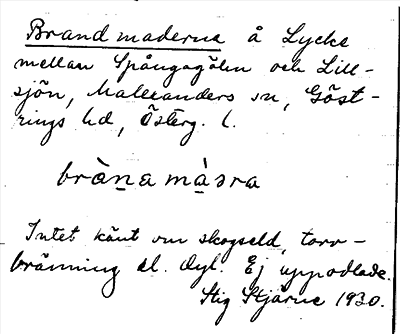 Brandmaderna å Lycke
mellan Spångagölen och Lill-
sjön, Malexanders sn, Göst-
rings hd, Österg. l.
bràn̲a mà̲əra
Intet känt om skogseld, torv-
bränning el. dyl. Ej uppodlade.
Stig Stjärne 1930.